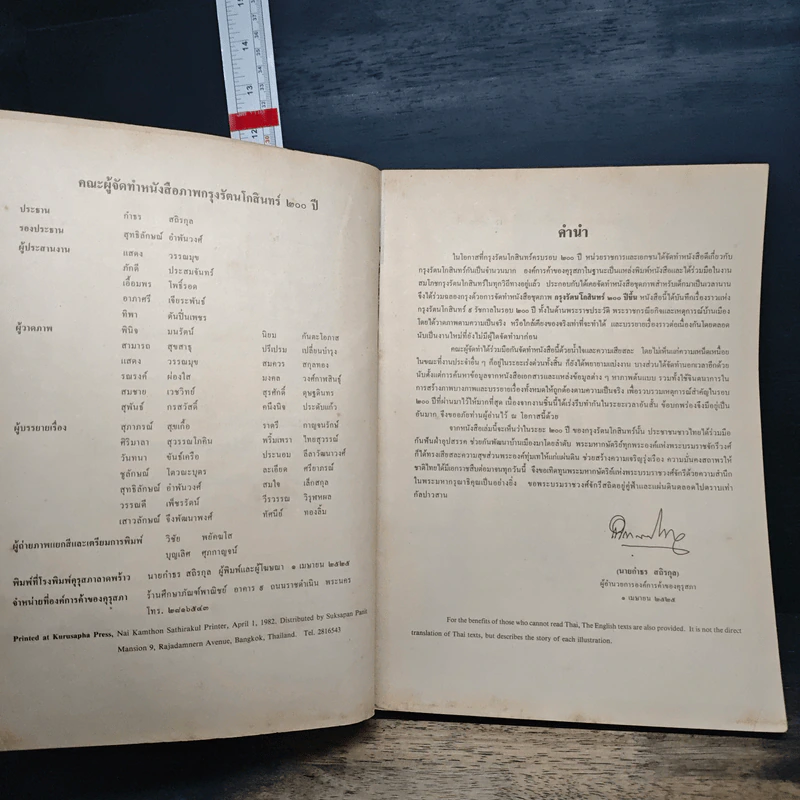 คณะผู้จัดทำหนังสือภาพกรุงรัตนโกสินทร์ ๒๐๐ ปี
ประธาน กำธร สถิรกุล
รองประธาน สุทธิลักษณ์ อำพันวงศ์
ผู้ประสานงาน แสดง วรรณมุข
ภักดี ประสมจันทร์
เอื้อมพร โพธิ์รอด
อาภาศรี เจียระพันธ์
ทิพา ตันปิ่นเพชร
ผู้วาดภาพ พินิจ มนรัตน์ นิยม กันตะโอภาส
สามารถ สุขสาธุ ปรีเปรม เปลี่ยนบำรุง
แสดง วรรณมุข สมควร สกุลทอง
รณรงค์ ผ่องใส มงคล วงศ์กาฬสินธุ์
สมชาย เวชวิทย์ สุรศักดิ์ ดุษฎดินทร
สุพันธ์ กรสวัสดิ์ คนึงนิจ ประดับแก้ว
ผู้บรรยายเรื่อง สุภาภรณ์ สุขเกื้อ ราตรี กาญจนรักษ์
ศิริมาลา สุวรรณโภคิน พริ้มเพรา ไทยสุวรรณ์
วันทนา ขันธ์เครือ ประนอม ลีลาวัฒนวงศ์
ชูลักษณ์ โตวณะบุตร ละเอียด ศรีอาภรณ์
สุทธิลักษณ์ อำพันวงศ์ สมใจ เล็กสกุล
วรรณดี เพ็ชรรัตน์ วีรวรรณ วิรุฬหผล
เสาวลักษณ์ จึงพัฒนาพงศ์ ทัศนีย์ ทองลิ้ม
ผู้ถ่ายภาพแยกสีและเตรียมการพิมพ์ วิชัย พยัคฆโส
บุญเลิศ ศุภกาญจน์
พิมพ์ที่โรงพิมพ์คุรุสภาลาดพร้าว นายกำธร สถิรกุล ผู้พิมพ์และผู้โฆษณา ๑ เมษายน ๒๕๒๕
จำหน่ายที่องค์การค้าของคุรุสภา ร้านศึกษาภัณฑ์พาณิชย์ อาคาร ๙ ถนนราชดำเนิน พระนคร
โทร. ๒๘๑๖๕๔๓
Printed at Kurusapha Press, Nai Kamthon Sathirakul Printer, April 1, 1982, Distributed by Suksapan Panit
Mansion 9, Rajadamnern Avenue, Bangkok, Thailand. Tel. 2816543
คำนำ
ในโอกาสที่กรุงรัตนโกสินทร์ครบรอบ ๒๐๐ ปี หน่วยราชการและเอกชนได้จัดทำหนังสือดีเกี่ยวกับ
กรุงรัตนโกสินทร์กันเป็นจำนวนมาก องค์การค้าของคุรุสภาในฐานะเป็นแหล่งพิมพ์หนังสือและได้ร่วมมือในงาน
สมโภชกรุงรัตนโกสินทร์ในทุกวิถีทางอยู่แล้ว ประกอบกับได้เคยจัดทำหนังสือชุดภาพสำหรับเด็กมาเป็นเวลานาน
จึงได้ร่วมฉลองกรุงด้วยการจัดทำหนังสือชุดภาพ กรุงรัตนโกสินทร์ ๒๐๐ ปีขึ้น หนังสือนี้ได้บันทึกเรื่องราวแห่ง
กรุงรัตนโกสินทร์ ๙ รัชกาลในรอบ ๒๐๐ ปี ทั้งในด้านพระราชประวัติ พระราชกรณียกิจและเหตุการณ์บ้านเมือง
โดยได้วาดภาพตามความเป็นจริง หรือใกล้เคียงของจริงเท่าที่จะทำได้ และบรรยายเรื่องราวต่อเนื่องกันโดยตลอด
นับเป็นงานใหม่ที่ยังไม่มีผู้ใดจัดทำมาก่อน
คณะผู้จัดทำได้ร่วมมือกันจัดทำหนังสือนี้ด้วยน้ำใจและความเสียสละ โดยไม่เห็นแก่ความเหนื่อย
ในขณะที่งานประจำอื่น ๆ ก็อยู่ในระยะเร่งด่วนทั้งสิ้น ก็ยังได้พยายามแบ่งงาน บางส่วนได้จัดทำนอกเวลาอีกด้วย
นับตั้งแต่การค้นหาข้อมูลจากหนังสือเอกสารและแหล่งข้อมูลต่าง ๆ หาภาพต้นแบบ รวมทั้งใช้จินตนาการใน
การสร้างภาพบางภาพและบรรยายเรื่องทั้งหมดให้ถูกต้องตามความเป็นจริง เพื่อรวบรวมเหตุการณ์สำคัญในรอบ
๒๐๐ ปีที่ผ่านมาไว้ให้มากที่สุด เนื่องจากงานชิ้นนี้ได้เร่งรีบทำกันในระยะเวลาอันสั้น ข้อบกพร่องจึงมีอยู่เป็น
อันมาก จึงขออภัยท่านผู้อ่านไว้ ณ โอกาสนี้ด้วย
จากหนังสือเล่มนี้จะเห็นว่าในระยะ ๒๐๐ ปี ของกรุงรัตนโกสินทร์นั้น ประชาชนชาวไทยได้ร่วมมือ
กันฟันฝ่าอุปสรรค ช่วยกันพัฒนาบ้านเมืองมาโดยลำดับ พระมหากษัตริย์ทุกพระองค์แห่งพระบรมราชจักรีวงศ์
ก็ได้ทรงเสียสละความสุขส่วนพระองค์ทุ่มเทให้แก่แผ่นดิน ช่วยสร้างความเจริญรุ่งเรือง ความมั่นคงสถาพรให้
ชาติไทยได้มีเอกราชสืบต่อมาจนทุกวันนี้ จึงขอเทิดทูนพระมหากษัตริย์แห่งพระบรมราชจักรีวงศ์ด้วยความสำนึก
ในพระมหากรุณาธิคุณเป็นอย่างยิ่ง ขอพระบรมราชวงศ์จักรีสถิตอยู่คู่ฟ้าและแผ่นดินตลอดไปตราบเท่า
กัลปาวสาน
(นายกำธร สถิรกุล)
ผู้อำนวยการองค์การค้าของคุรุสภา
๑ เมษายน ๒๕๒๕
For the benefits of those who cannot read Thai, The English texts are also provided. It is not the direct
translation of Thai texts, but describes the story of each illustration.
14
13
12